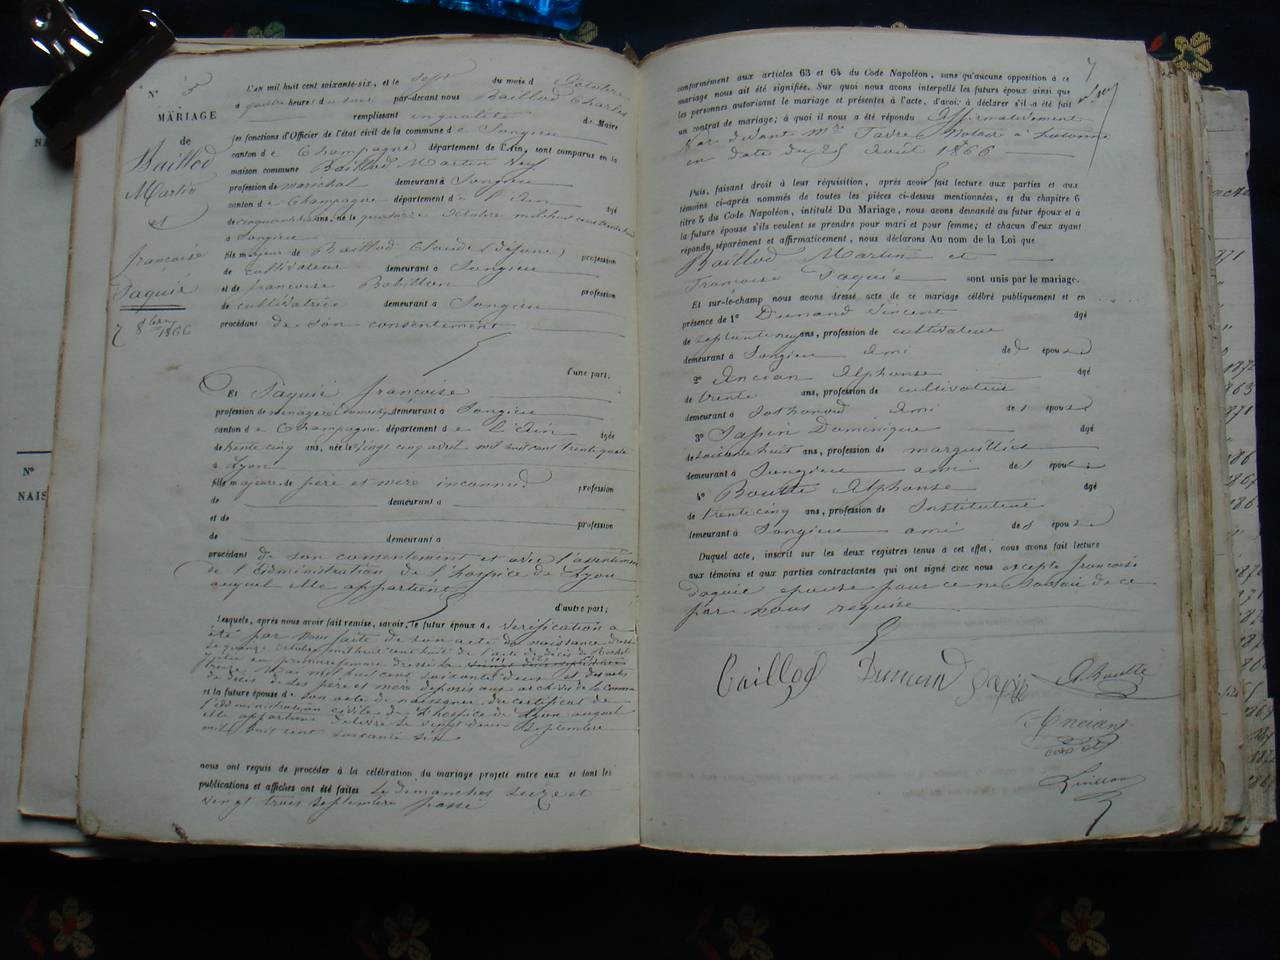 N° 3
MARIAGE
de
Baillod
Martin
et
françoise
Paquié
7 8bre 1866
L'AN mil huit cent soixante-six, et le sept du mois d octobre
à quatre heures du soir par-devant nous Baillod Charles
remplissant en qualité de Maire
les fonctions d'Officier de l'état civil de la commune de Songieu
canton de Champagne département de l'Ain, sont comparus en la
maison commune Baillod Martin Veuf
profession de maréchal demeurant à Songieu
canton de Champagne département de l'Ain âgé
de cinquante ans, né le quatorze octobre mil huit cent
à Songieu
fils majeur de Baillod Claude (défunt) profession
de cultivateur demeurant à Songieu
et de françoise Bobillon profession
de cultivatrice demeurant à Songieu
procédant de son consentement
d'une part,
Et Paquié françoise
profession de ménagère demeurant à Songieu
canton de Champagne département de l'Ain âgée
de trente cinq ans, née le vingt cinq avril mil huit cent trente
à Lyon
fille majeure de père et mère inconnus profession
de demeurant à
et de profession
de demeurant à
procédant de son consentement et avec l'assentiment
de l'administration de l'hospice de Lyon
auquel elle appartient
d'autre part;
Lesquels, après nous avoir fait remise, savoir, le futur époux de vérification a
été par nous faite de son acte de naissance dressé
le quatorze octobre mil huit cent de l'acte de décès de
en première femme dressé le
mil huit cent soixante et des actes
de décès de ses père et mère déposés aux archives de la commune
et la future épouse d son acte de naissance du certificat de
l'administration civile de l'hospice de Lyon auquel
elle appartient délivré le vingt deux septembre
mil huit cent soixante six
nous ont requis de procéder à la célébration du mariage projeté entre eux et dont les
publications et affiches ont été faites les dimanches seize et
vingt trois septembre passé
7
conformément aux articles 63 et 64 du Code Napoléon, sans qu'aucune opposition à ce
mariage nous ait été signifiée. Sur quoi nous avons interpellé les futurs époux ainsi que
les personnes autorisant le mariage et présentes à l'acte, d'avoir à déclarer s'il a été fait
un contrat de mariage; à quoi il nous a été répondu affirmativement
par devant Me Favre Notaire à
en date du 25 août 1866
Puis, faisant droit à leur réquisition, après avoir fait lecture aux parties et aux
témoins ci-après nommés de toutes les pièces ci-dessus mentionnées, et du chapitre 6
titre 5 du Code Napoléon, intitulé Du Mariage, nous avons demandé au futur époux et à
la future épouse s'ils veulent se prendre pour mari et pour femme; et chacun d'eux ayant
répondu séparément et affirmativement, nous déclarons Au nom de la Loi que
Baillod Martin et
Françoise Paquié sont unis par le mariage.
Et sur-le-champ nous avons dressé acte de ce mariage célébré publiquement et en
présence de 1° Dumand Vincent âgé
de septante neuf ans, profession de cultivateur
demeurant à Songieu ami de l'époux
2° Ancian Alphonse âgé
de trente ans, profession de cultivateur
demeurant à Sothonod ami de l'époux
3° Sapin Dominique âgé
de soixante huit ans, profession de marguillier
demeurant à Songieu ami de l'époux
4° Boutte Alphonse âgé
de trente cinq ans, profession de Instituteur
demeurant à Songieu ami de l'époux
Duquel acte, inscrit sur les deux registres tenus à cet effet, nous avons fait lecture
aux témoins et aux parties contractantes qui ont signé avec nous excepté françoise
Paquié épouse pour ce ne savoir de ce
par nous requise
Baillod Dumand Sapin A. Boutte
Ancian
N°
NAIS